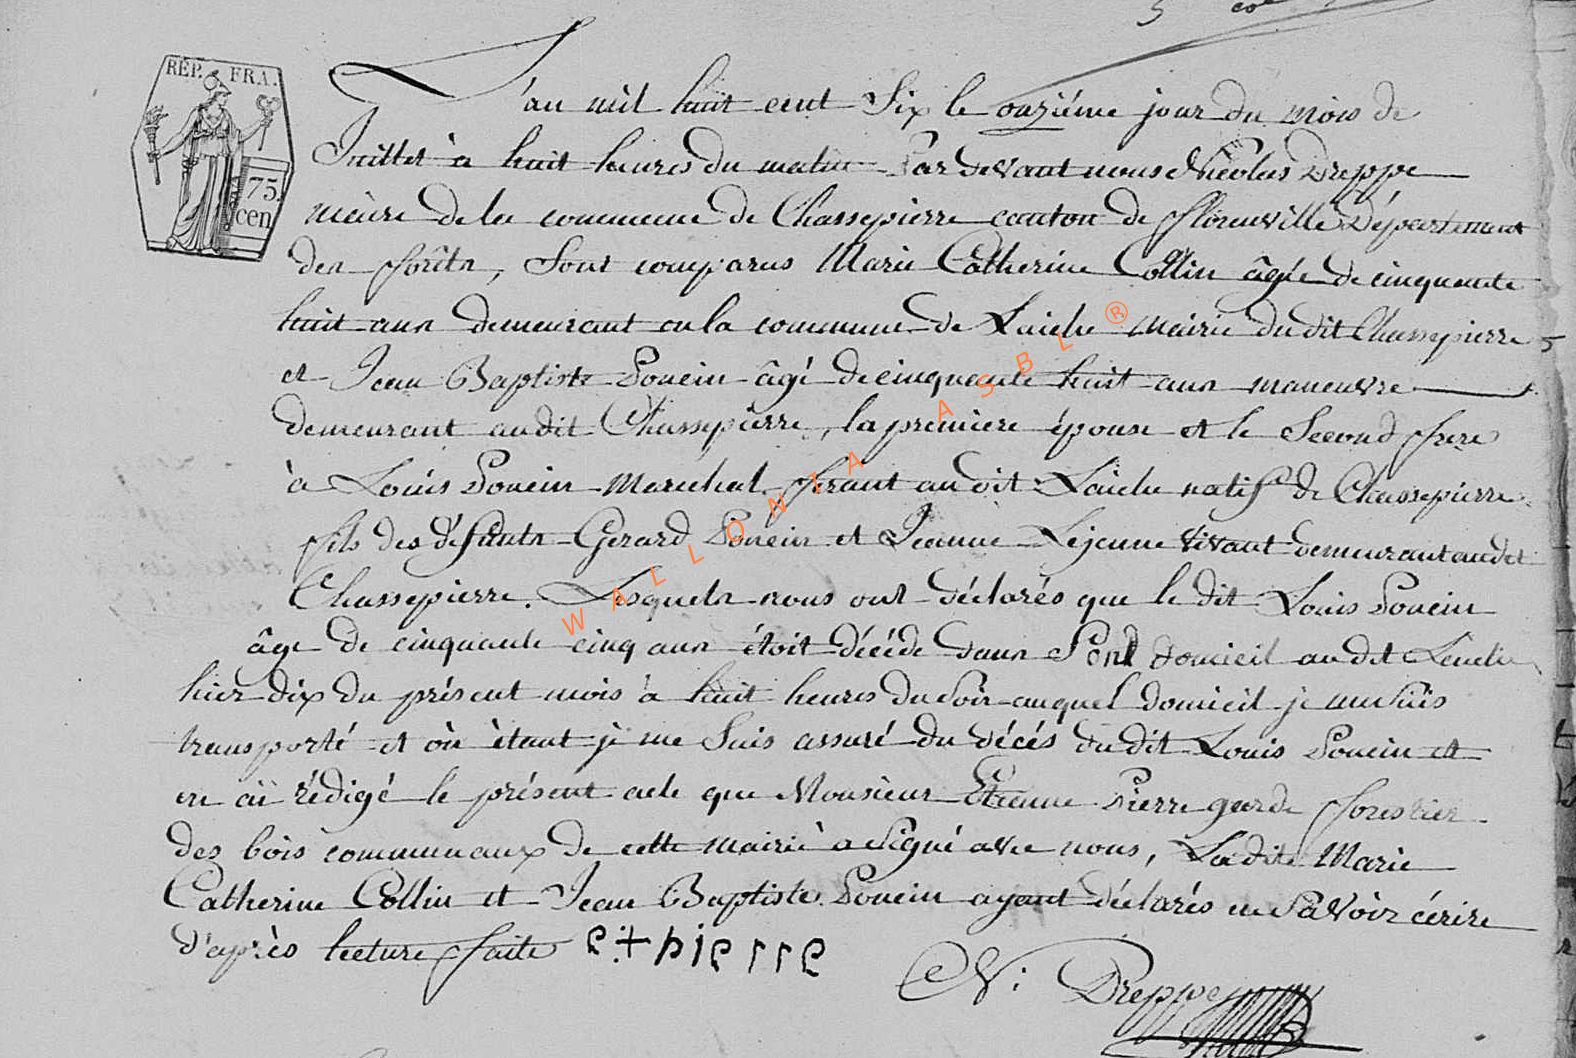 5
RÉP. FRA.
75.
cen
L'an mil huit cent Six le onziéme jour du mois de
Juillet à huit heures du matin Par devant nous Nicolas Dreppe
maire de la commune de Chassepierre canton de fflorenville Département
des fforêts, Sont comparus Marie Catherine Collin âgée de cinquante
huit ans demeurant en la commune de Laiche mairie du dit Chassepierre
et Jean Baptiste Poncin âgé de cinquante huit ans maneuvre
demeurant audit Chassepierre, la premiere épouse et le Second frere
à Louis Poncin Marechal ferant au dit Laiche natif de Chassepierre
fils des défunts Gerard Poncin et Jeanne Lejeune vivant demeurant audit
Chassepierre. Lesquels nous ont déclarés que le dit Louis Poncin
âge de cinquante cinq ans étoit décéde dans domicil au dit Laiche
hier dix du présent mois à huit heures du Soir auquel domicil je me Suis
transporté et où étant je me Suis assuré du décés du dit Louis Poncin et
en ai rédigé le présent acte que Monsieur Etienne Pierre garde fforestier
des bois communaux de cette mairie a Signé avec nous, La dite Marie
Catherine Collin et Jean Baptiste Poncin ayant déclarés ne Savoir écrire
d'après lecture ffaite et pierre
N: Dreppe
WALLONIA ASBL ®